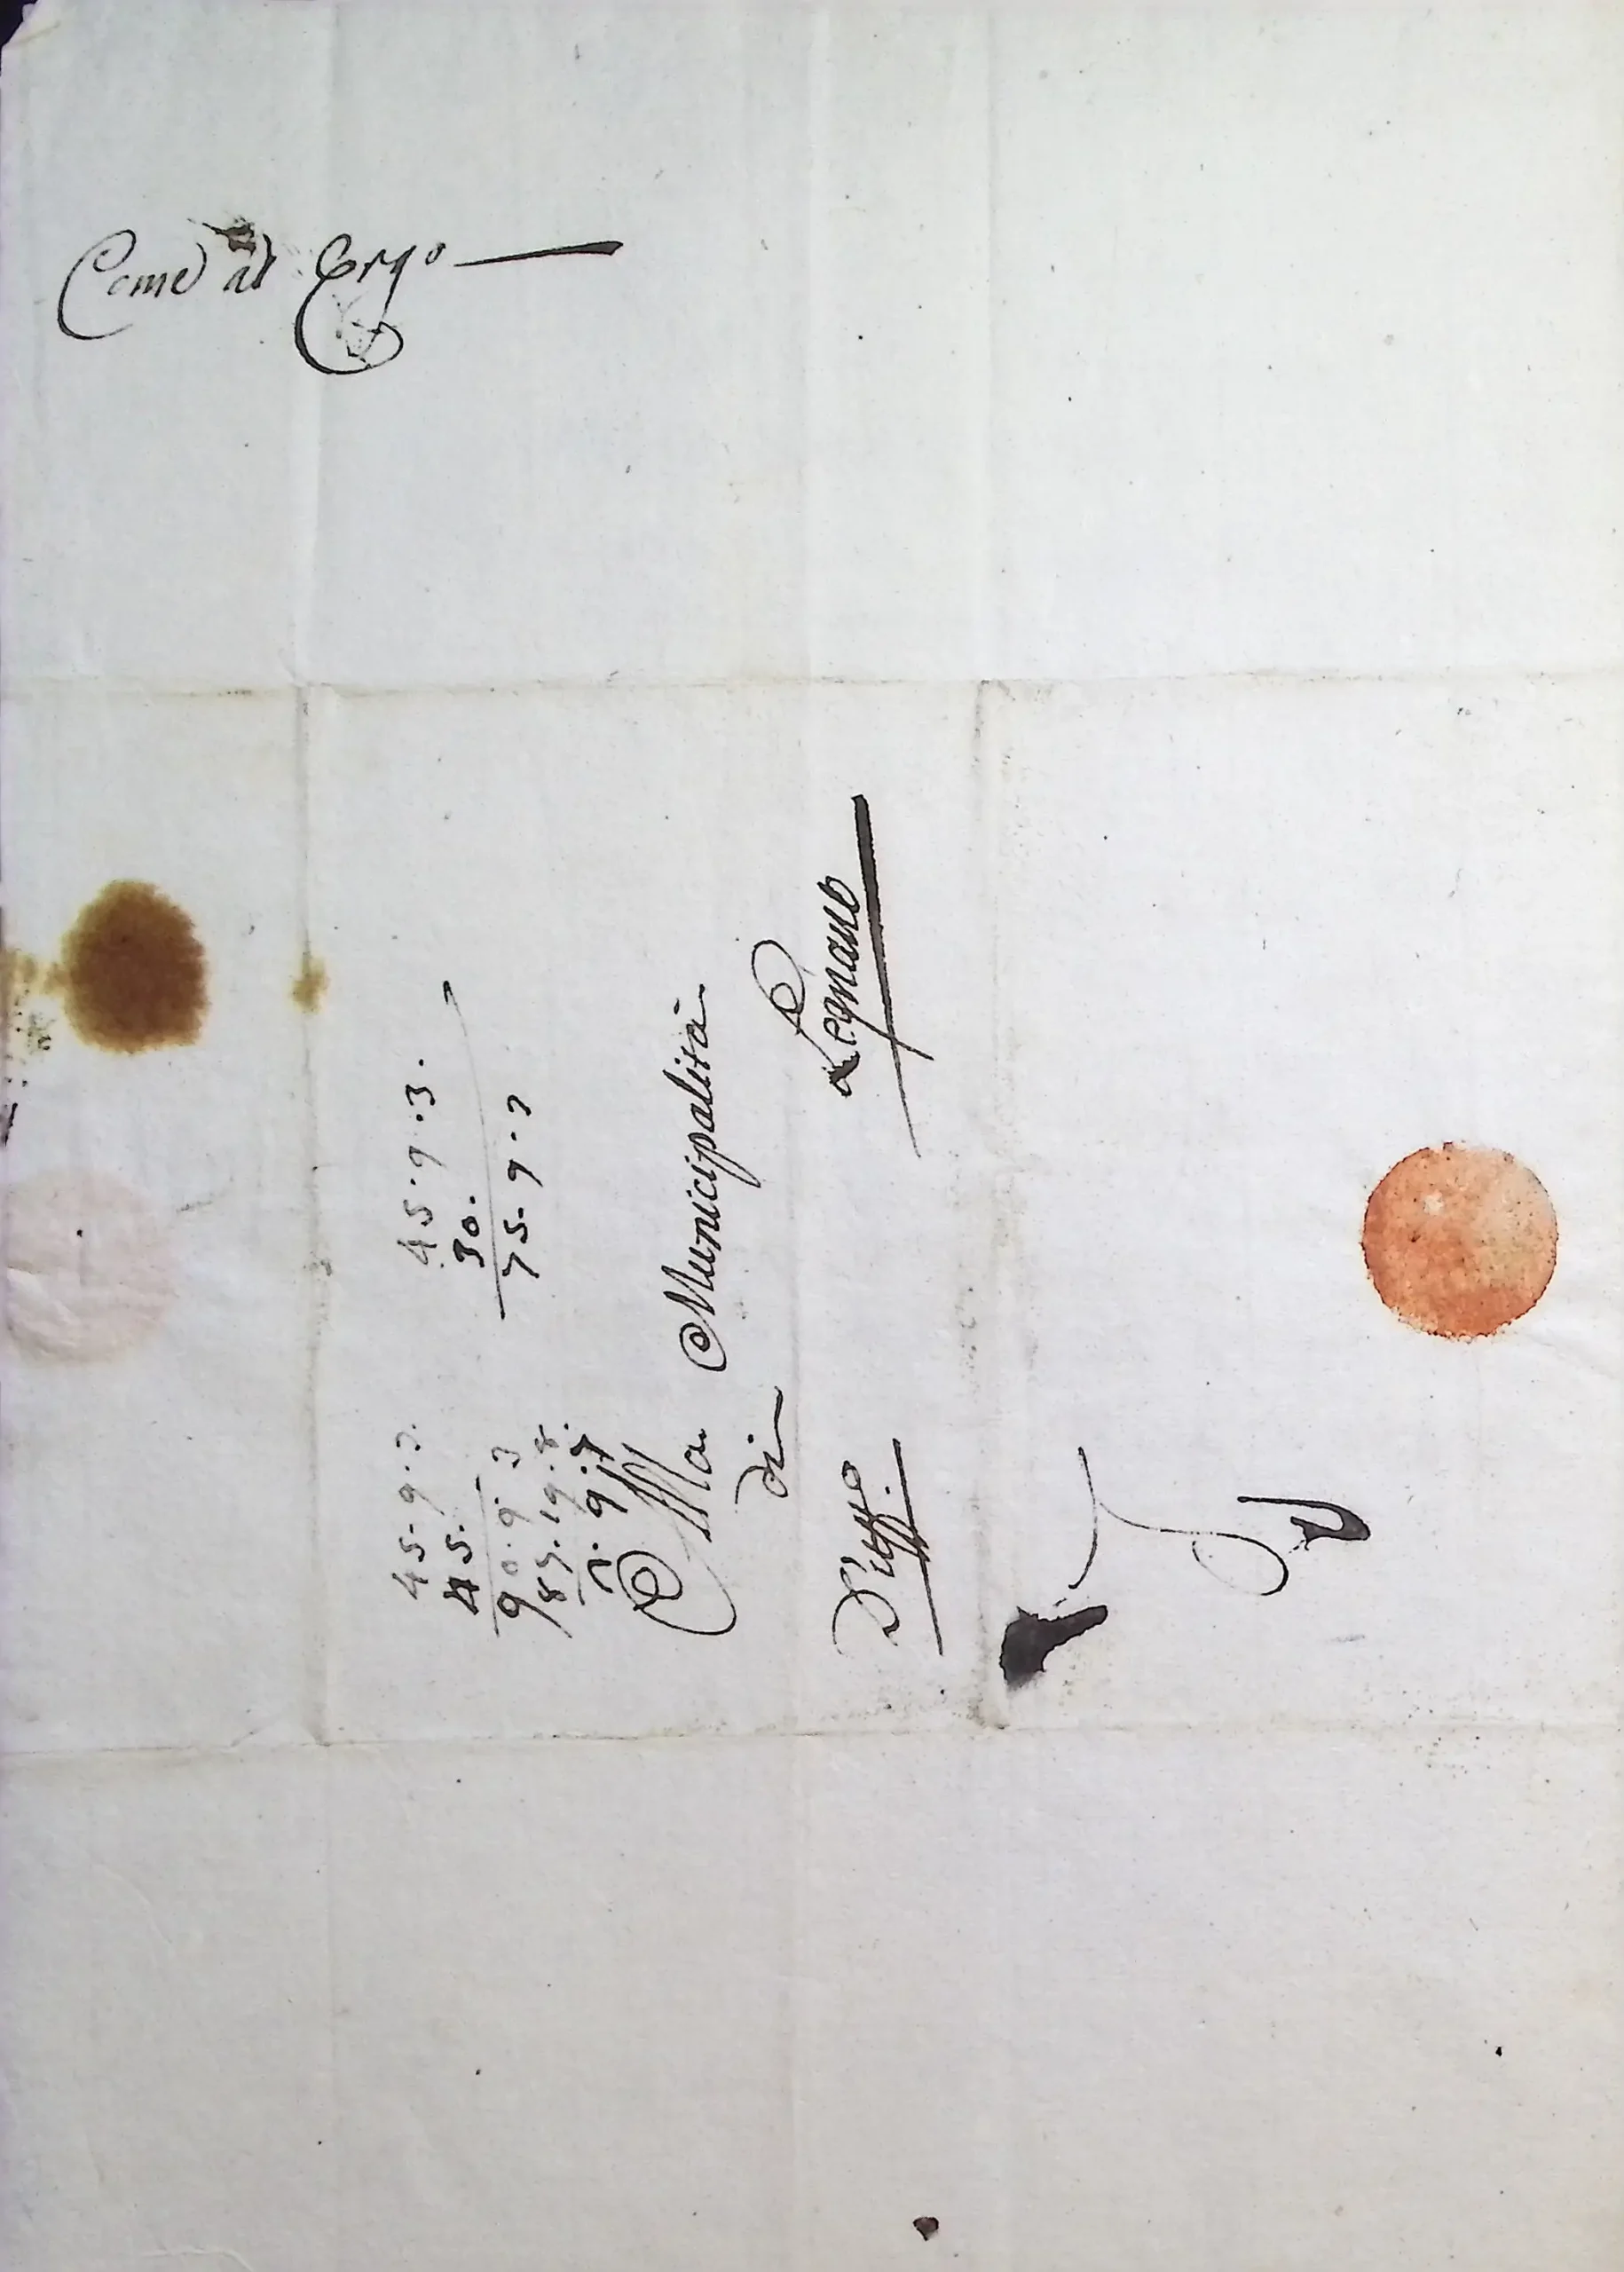 Come al Tergo
45.9.3.
45.
90.9.3
85.19.8.
45.9.3.
30.
75.9.3
Alla Municipalità
di
Legnano
D'Uffo.